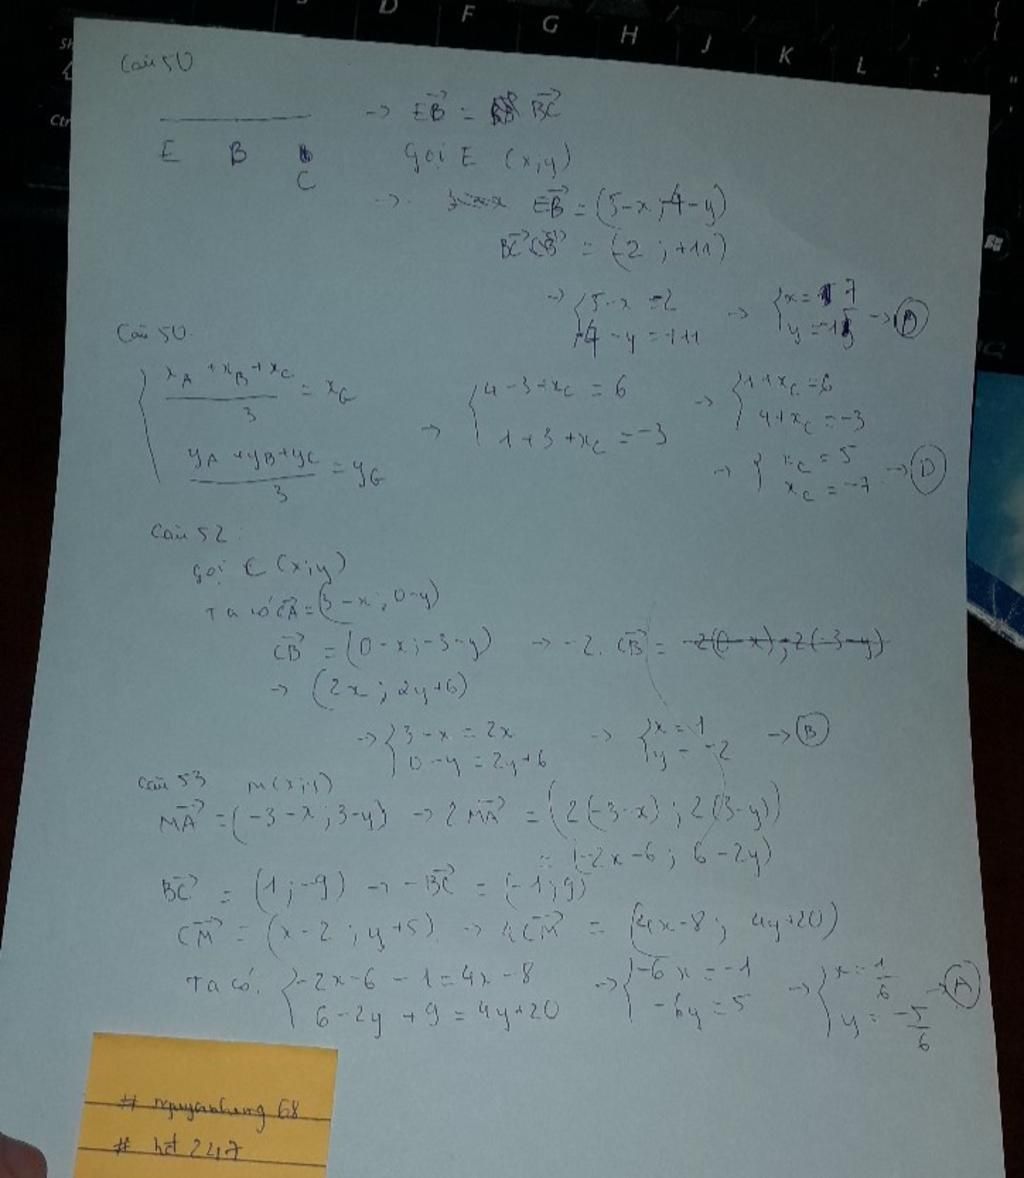 D F G H J K L :
Ctr
Câu 50
→ EB = BC
E B C
Gọi E (x;y)
→ EB = (5-x; -4-y)
BC = (-2; +11)
→ { 5-x = -2
-4-y = +11
→ { x = 7
y = -15 → (D)
Câu 50.
{ (xA + xB + xC)/3 = xG
(yA + yB + yC)/3 = yG
→ { 4-3+xC = 6
1+3+xC = -3
→ { 1+xC = 6
4+xC = -3
→ { xC = 5
xC = -7 → (D)
Câu 52.
Gọi C (x;y)
Ta có CA = (3-x; 0-y)
CB = (0-x; -3-y) → -2. CB = -2(0-x); -2(-3-y)
→ (2x; 2y+6)
→ { 3-x = 2x
0-y = 2y+6
→ { x = 1
y = -2 → (B)
Câu 53 M(x;y)
MA = (-3-x; 3-y) → 2MA = (2(-3-x); 2(3-y))
= (-2x-6; 6-2y)
BC = (1; -9) → -BC = (-1; 9)
CM = (x-2; y+5) → 4CM = (4x-8; 4y+20)
Ta có: { -2x-6-1 = 4x-8
6-2y+9 = 4y+20
→ { -6x = -1
-6y = 5
→ { x = 1/6
y = -5/6 → (A)
# nguyenhung 68
# hđ 247